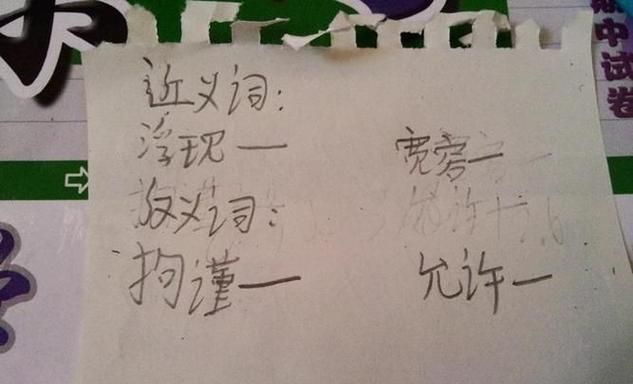 近义词：
浮现— 宽旁—
反义词：
拘谨— 允许—
中试卷